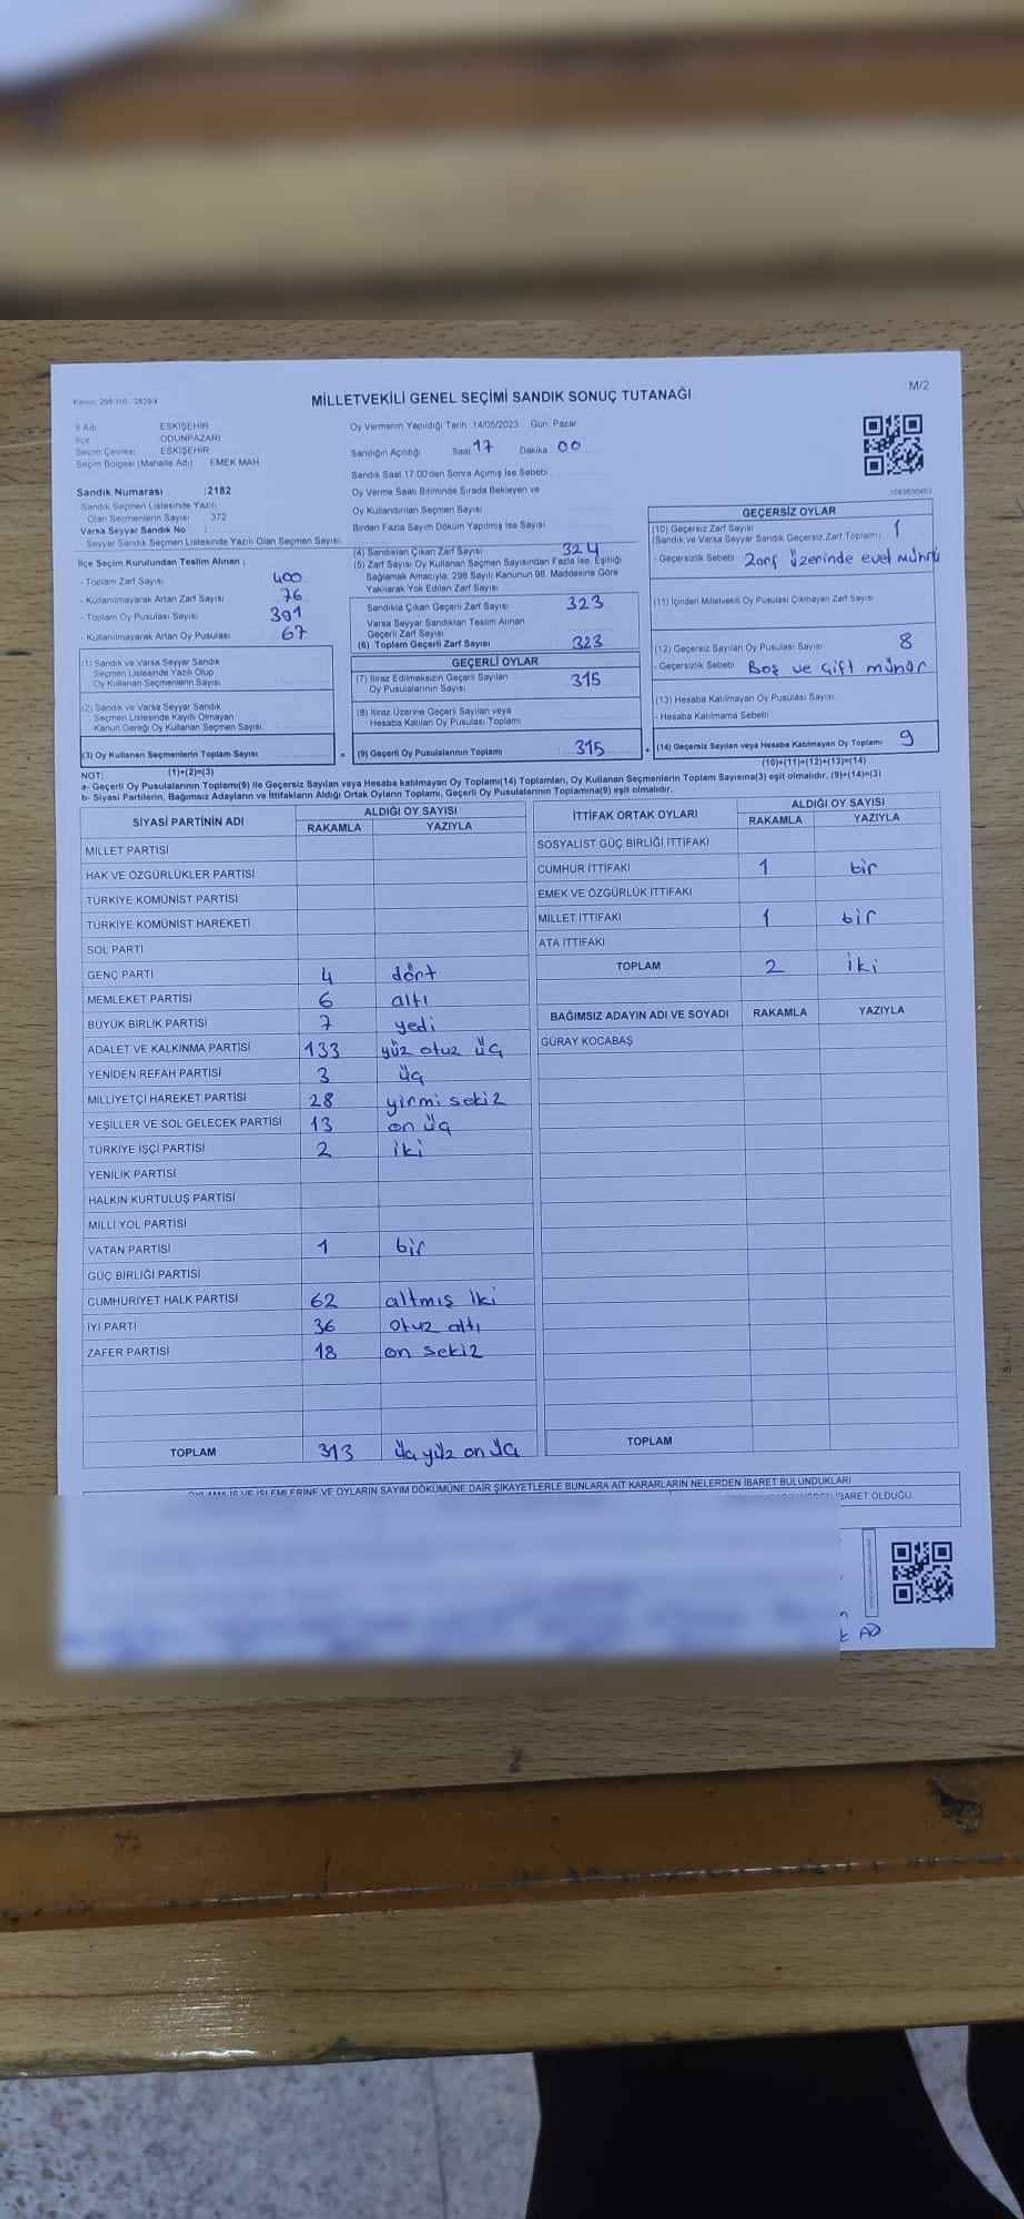 MİLLETVEKİLİ GENEL SEÇİMİ SANDIK SONUÇ TUTANAĞI
M/2
İl Adı ESKİŞEHİR
İlçe ODUNPAZARI
Seçim Çevresi ESKİŞEHİR
Seçim Bölgesi (Mahalle Adı) EMEK MAH
Sandık Numarası :2182
Sandık Seçmen Listesinde Yazılı
Olan Seçmenlerin Sayısı 372
Varsa Seyyar Sandık No
Seyyar Sandık Seçmen Listesinde Yazılı Olan Seçmen Sayısı
Oy Vermenin Yapıldığı Tarih 14/05/2023 Gün: Pazar
Sandığın Açıldığı Saat 17 Dakika 00
Sandık Saat 17:00'den Sonra Açılmış İse Sebebi
Oy Verme Saati Bitiminde Sırada Bekleyen ve
Oy Kullandırılan Seçmen Sayısı
Birden Fazla Sayım Döküm Yapılmış İse Sayısı
İlçe Seçim Kurulundan Teslim Alınan :
- Toplam Zarf Sayısı 400
- Kullanılmayarak Artan Zarf Sayısı 76
- Toplam Oy Pusulası Sayısı 391
- Kullanılmayarak Artan Oy Pusulası 67
(1) Sandık ve Varsa Seyyar Sandık
Seçmen Listesinde Yazılı Olup
Oy Kullanan Seçmenlerin Sayısı
(2) Sandık ve Varsa Seyyar Sandık
Seçmen Listesinde Kayıtlı Olmayan
Kanun Gereği Oy Kullanan Seçmen Sayısı
(3) Oy Kullanan Seçmenlerin Toplam Sayısı =
(1)+(2)=(3)
(4) Sandıktan Çıkan Zarf Sayısı 324
(5) Zarf Sayısı Oy Kullanan Seçmen Sayısından Fazla İse, Eşitliği
Sağlamak Amacıyla, 298 Sayılı Kanunun 98. Maddesine Göre
Yakılarak Yok Edilen Zarf Sayısı
Sandıkta Çıkan Geçerli Zarf Sayısı 323
Varsa Seyyar Sandıktan Teslim Alınan
Geçerli Zarf Sayısı
(6) Toplam Geçerli Zarf Sayısı 323
GEÇERLİ OYLAR
(7) İtiraz Edilmeksizin Geçerli Sayılan
Oy Pusulalarının Sayısı 315
(8) İtiraz Üzerine Geçerli Sayılan veya
Hesaba Katılan Oy Pusulası Toplamı
(9) Geçerli Oy Pusulalarının Toplamı 315 +
GEÇERSİZ OYLAR
(10) Geçersiz Zarf Sayısı
(Sandık ve Varsa Seyyar Sandık Geçersiz Zarf Toplamı) 1
- Geçersizlik Sebebi Zarf üzerinde evet mührü
(11) İçinden Milletvekili Oy Pusulası Çıkmayan Zarf Sayısı
(12) Geçersiz Sayılan Oy Pusulası Sayısı 8
- Geçersizlik Sebebi Boş ve Çift mühür
(13) Hesaba Katılmayan Oy Pusulası Sayısı
- Hesaba Katılmama Sebebi
(14) Geçersiz Sayılan veya Hesaba Katılmayan Oy Toplamı 9
(10)+(11)+(12)+(13)=(14)
NOT:
a- Geçerli Oy Pusulalarının Toplamı(9) ile Geçersiz Sayılan veya Hesaba katılmayan Oy Toplamı(14) Toplamları, Oy Kullanan Seçmenlerin Toplam Sayısına(3) eşit olmalıdır. (9)+(14)=(3)
b- Siyasi Partilerin, Bağımsız Adayların ve İttifakların Aldığı Ortak Oyların Toplamı, Geçerli Oy Pusulalarının Toplamına(9) eşit olmalıdır.
SİYASİ PARTİNİN ADI ALDIĞI OY SAYISI
RAKAMLA YAZIYLA
MİLLET PARTİSİ
HAK VE ÖZGÜRLÜKLER PARTİSİ
TÜRKİYE KOMÜNİST PARTİSİ
TÜRKİYE KOMÜNİST HAREKETİ
SOL PARTİ
GENÇ PARTİ 4 dört
MEMLEKET PARTİSİ 6 altı
BÜYÜK BİRLİK PARTİSİ 7 yedi
ADALET VE KALKINMA PARTİSİ 133 yüz otuz üç
YENİDEN REFAH PARTİSİ 3 üç
MİLLİYETÇİ HAREKET PARTİSİ 28 yirmi sekiz
YEŞİLLER VE SOL GELECEK PARTİSİ 13 on üç
TÜRKİYE İŞÇİ PARTİSİ 2 iki
YENİLİK PARTİSİ
HALKIN KURTULUŞ PARTİSİ
MİLLİ YOL PARTİSİ
VATAN PARTİSİ 1 bir
GÜÇ BİRLİĞİ PARTİSİ
CUMHURİYET HALK PARTİSİ 62 altmış iki
İYİ PARTİ 36 otuz altı
ZAFER PARTİSİ 18 on sekiz
TOPLAM 313 üç yüz on üç
İTTİFAK ORTAK OYLARI ALDIĞI OY SAYISI
RAKAMLA YAZIYLA
SOSYALİST GÜÇ BİRLİĞİ İTTİFAKI
CUMHUR İTTİFAKI 1 bir
EMEK VE ÖZGÜRLÜK İTTİFAKI
MİLLET İTTİFAKI 1 bir
ATA İTTİFAKI
TOPLAM 2 iki
BAĞIMSIZ ADAYIN ADI VE SOYADI RAKAMLA YAZIYLA
GÜRAY KOCABAŞ
TOPLAM
OYLAMA İŞ VE İŞLEMLERİNE VE OYLARIN SAYIM DÖKÜMÜNE DAİR ŞİKAYETLERLE BUNLARA AİT KARARLARIN NELERDEN İBARET BULUNDUKLARI
İBARET OLDUĞU